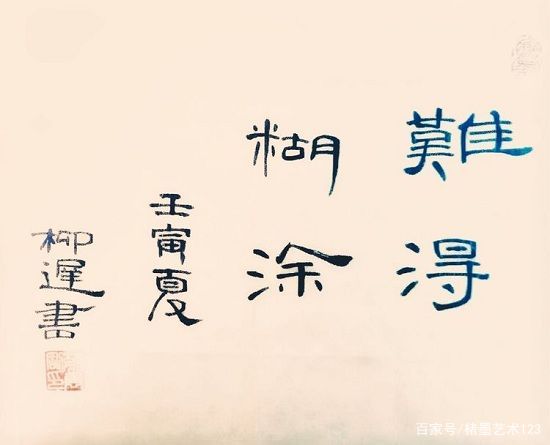 難淂
糊涂
壬寅夏
柳遲書
百家号/楮墨艺术123